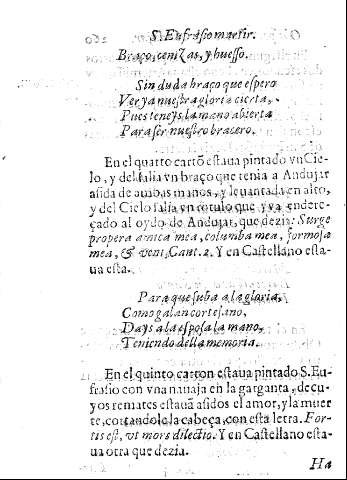 S. Eufrasio martir.
Braço, ceniZas, y huesso.
Sin duda braço que espero
Ver ya nuestra gloria cierta,
Pues teneys la mano abierta
Para ser nuestro bracero.
En el quarto cartõ estaua pintado vn Cie-
lo, y del salia vn braço que tenia a Andujar
asida de ambas manos, y leuantada en alto,
y del Cielo salia vn rotulo que yva endere-
çado al oydo de Andujar, que dezia: Surge
propera amica mea, columba mea, formosa
mea, & veni, Cant. 2. Y en Castellano esta-
ua esta.
Para que suba a la gloria,
Como galan cortesano,
Days a la esposa la mano,
Teniendo della memoria.
En el quinto carton estaua pintado S. Eu-
frasio con vna nauaja en la garganta, de cu-
yos remates estauã asidos el amor, y la muer
te, cortandole la cabeça, con esta letra. For-
tis est, vt mors dilectio. Y en Castellano esta-
ua otra que dezia.
Ha